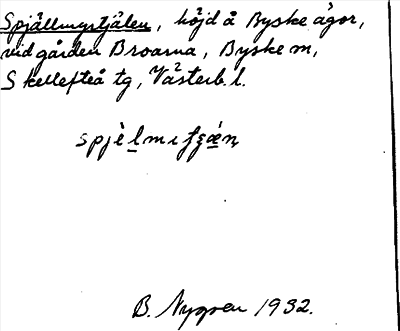 Spjällmystjälen, höjd å Byske ågor,
vid gården Broarna, Byske m,
Skellefteå tg, Västerb. l.
B. Nygren 1932.